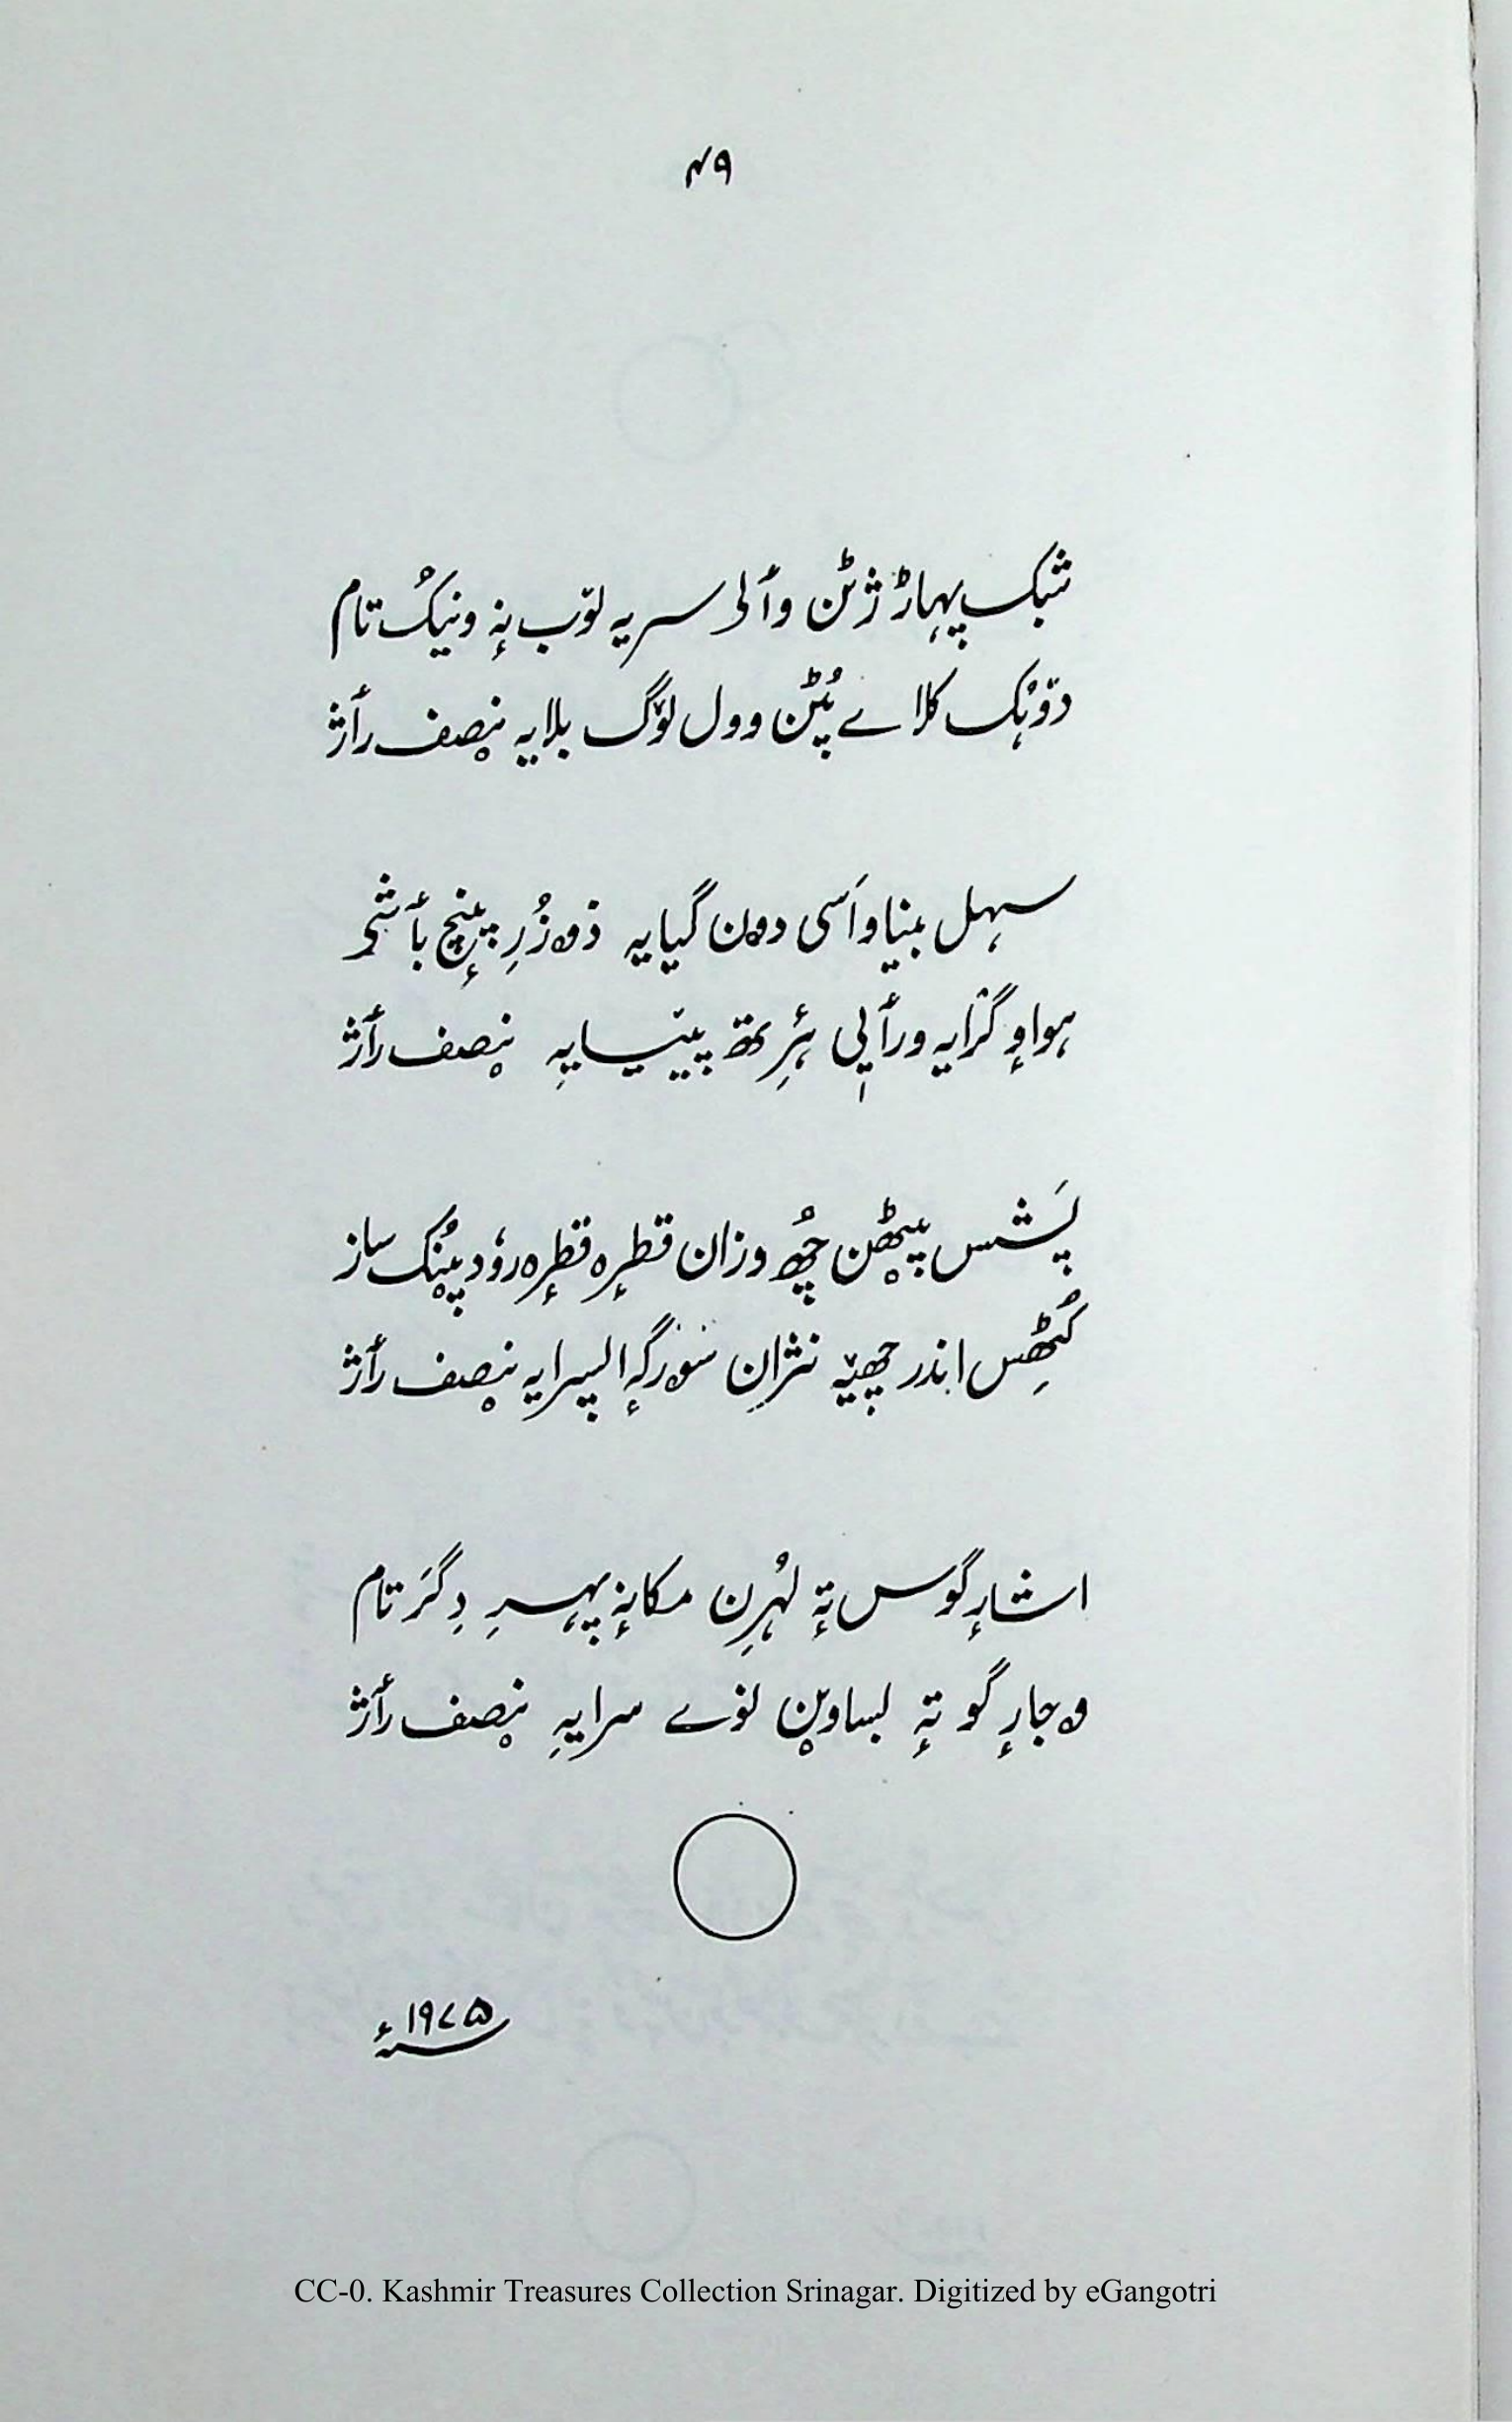 ۴۹
شبک پہاڑ ژٹن وألی سریہ لوٚب نہٕ ونیکُ تام
دوٚہُک کلاے پُٹن وول لوٚگ بلایہ نِصف رأژ
سہل بنیاو أسی دون گیایہ ذون زُرِ بأشٕ
ہواوٕ گرایہ ورأے ہٮ۪رِتھ پیٚیایہِ نصف رأژ
پَشس پیٹھن چھُ وزان قطرٕہ قطرٕہ روٗد پنُک ساز
کُٹھِس اندر چھیہٚ نژان سورگہٕ اپسرایہ نصف رأژ
اشارٕ گوس تہٕ لہُرِن مکانہٕ پہرِ دِگَر تام
وجارٕ گو تہٕ بساون نوے سرایہِ نصف رأژ
۱۹۷۵ء
CC-0. Kashmir Treasures Collection Srinagar. Digitized by eGangotri